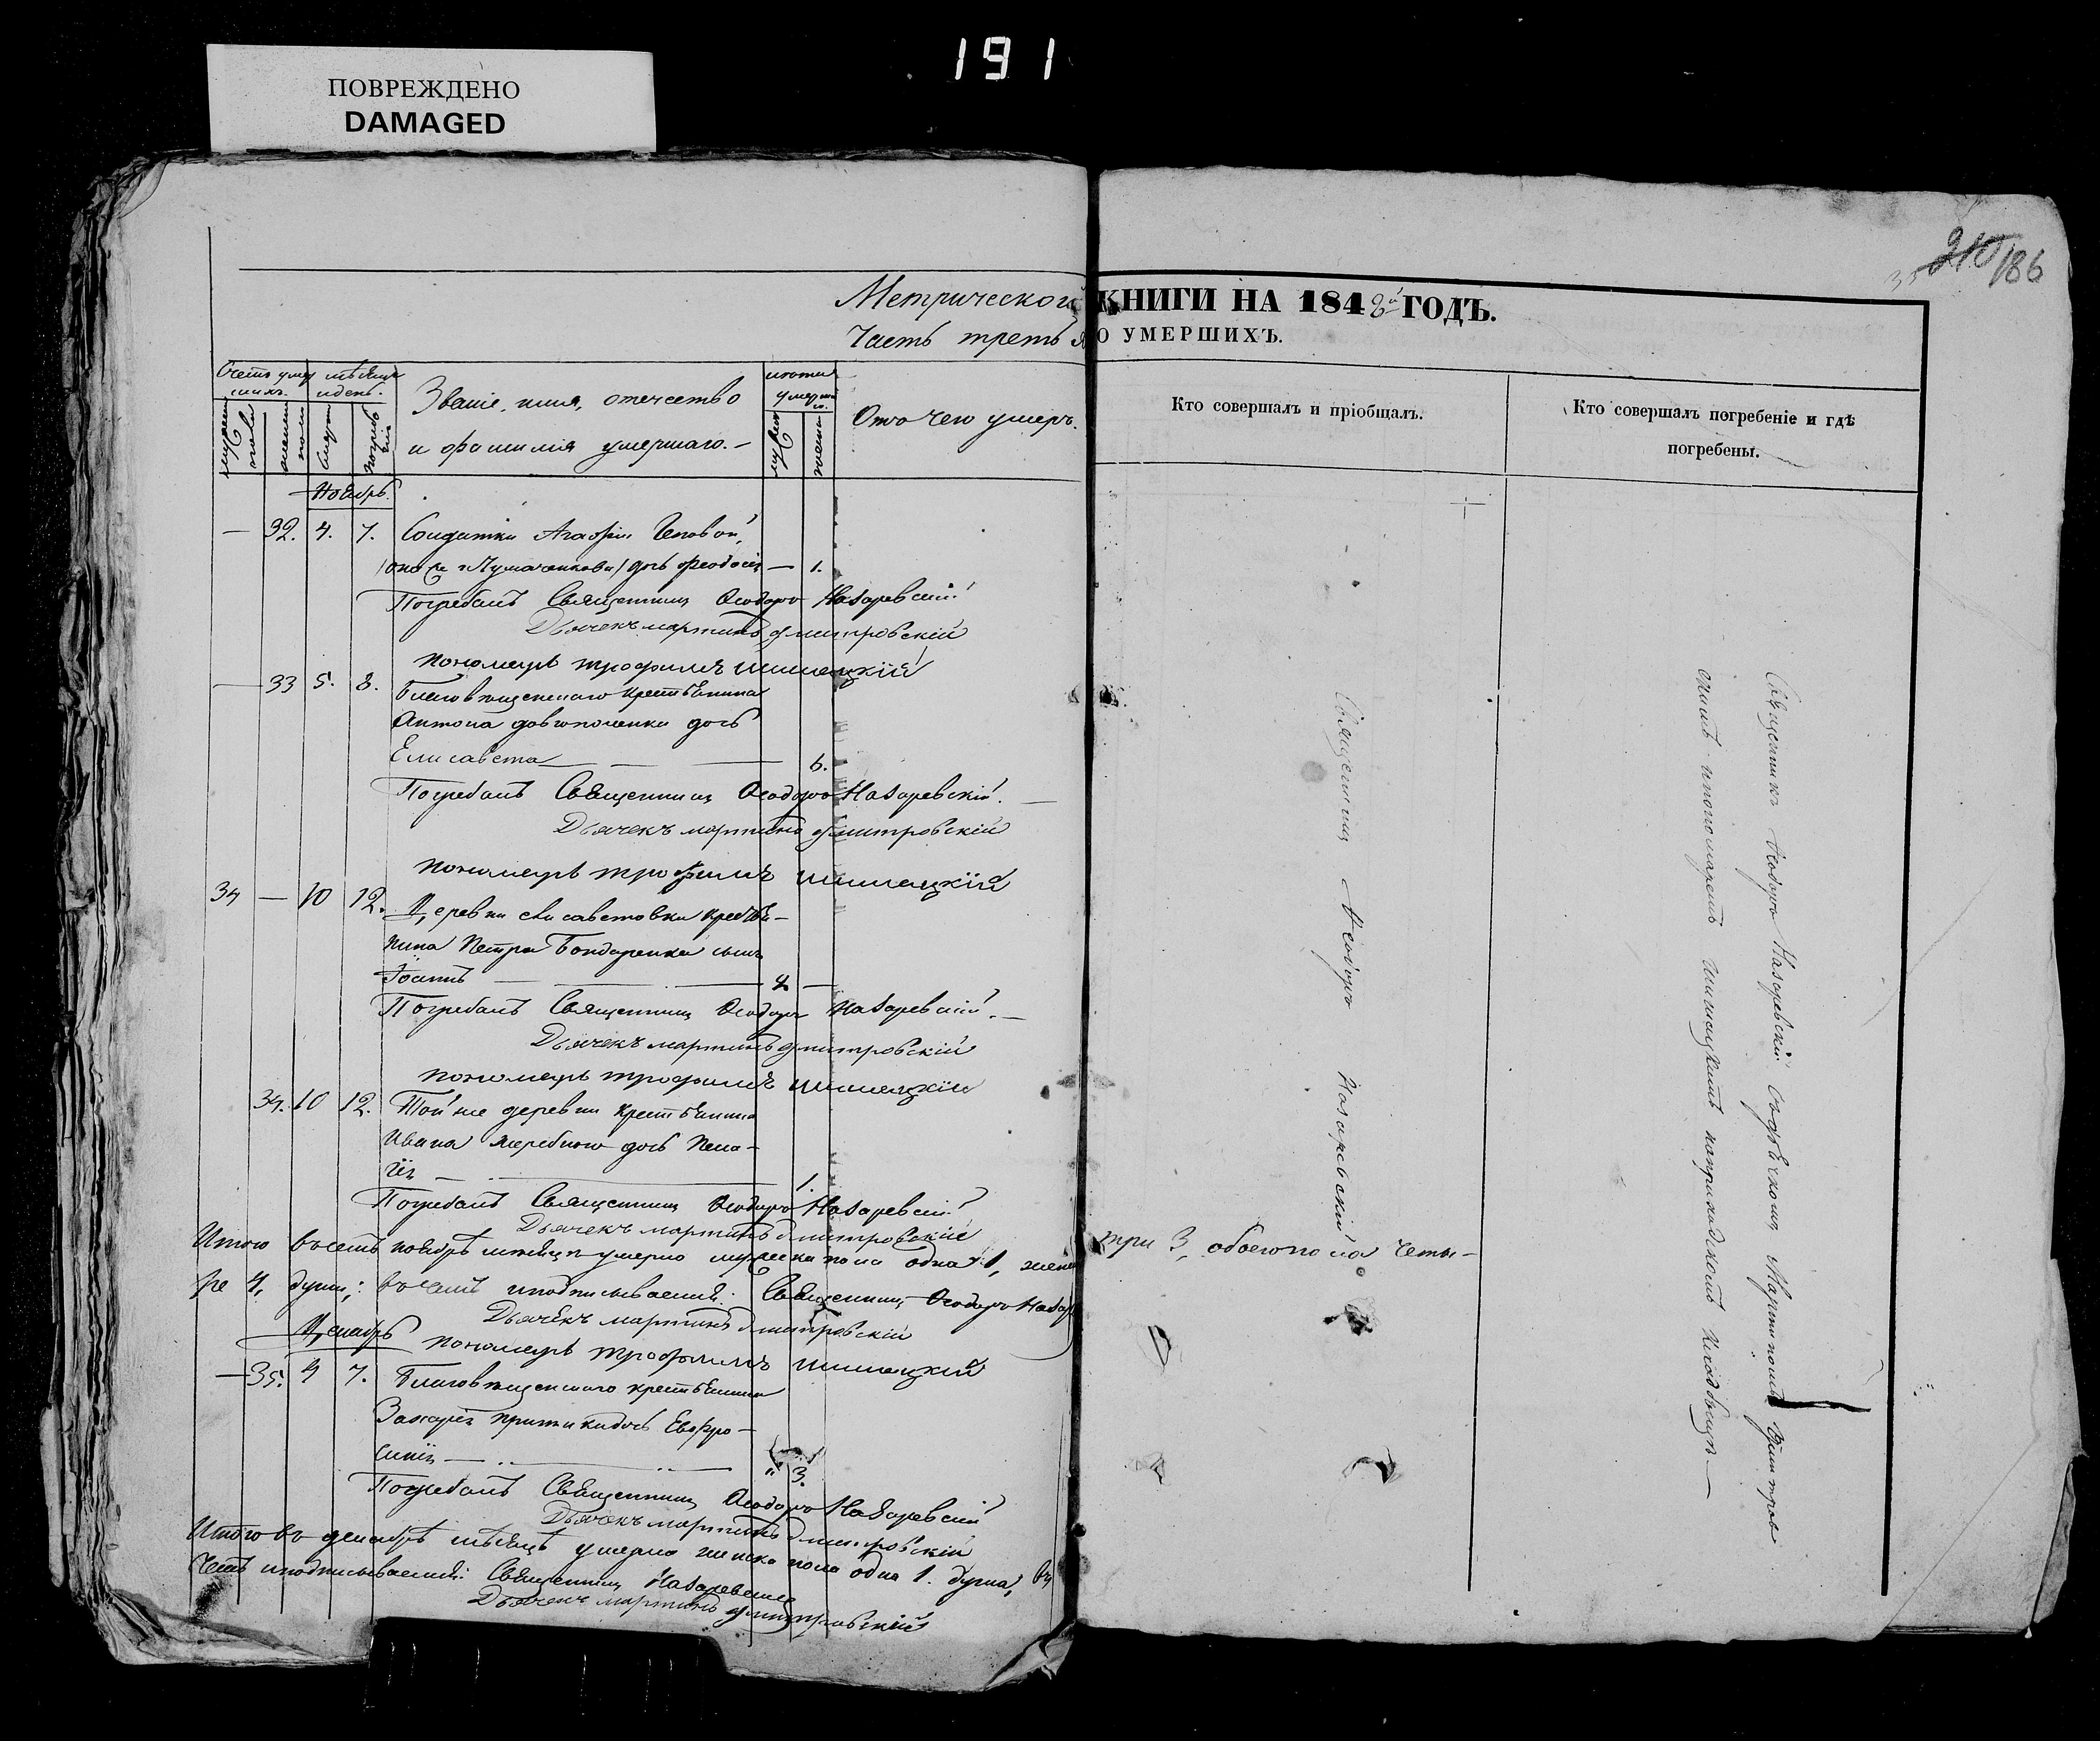 191
ПОВРЕЖДЕНО
DAMAGED
186
Метрической КНИГИ НА 1848й ГОДЪ.
Часть третья О УМЕРШИХЪ.
Званіе, имя, отечество
и фамилія умершаго.
Отъ чего умеръ.
Кто совершалъ и пріобщалъ.
Кто совершалъ погребеніе и гдѣ
погребены.
Ноябрь.
— 32. 4. 7. Солдатки Агафіи
дочь Феодосія — 1.
Погребалъ Священникъ Ѳеодоръ Назаревскій
Дьячекъ мартинъ дмитровскій
пономарь трофимъ шишацкій
— 33 5. 8. Благовѣщенскаго крестьянина
Антона дочь
Елисавета — 6.
Погребалъ Священникъ Ѳеодоръ Назаревскій.
Дьячекъ мартинъ дмитровскій
пономарь трофимъ шишацкій
34 — 10 12. Деревни елисаветовки крестья-
нина Петра Бондаренка сынъ
Погребалъ Священникъ Ѳеодоръ Назаревскій.
Дьячекъ мартинъ дмитровскій
пономарь трофимъ шишацкій
34. 10 12. Той же деревни крестьянина
Ивана дочь Пела-
гія — 1.
Погребалъ Священникъ Ѳеодоръ Назаревскій
Дьячекъ мартинъ дмитровскій
Итого въ семъ ноябрѣ мѣсяцѣ умерло мужеска пола одна 1, женс три 3, обоего пола четы-
ре 4, души; въ чемъ и подписываемся: Священникъ Ѳеодоръ Назар
Дьячекъ мартинъ дмитровскій
Декабрь
пономарь трофимъ шишацкій
— 35. 4 7. Благовѣщенскаго крестьянина
Захарія дочь Евфро-
синія — 3.
Погребалъ Священникъ Ѳеодоръ Назаревскій
Дьячекъ мартинъ дмитровскій
Итого въ декабрѣ мѣсяцѣ умерло женска пола одна 1. душа, въ
чемъ и подписываемся: Священникъ Назаревскій
Дьячекъ мартинъ дмитровскій
Священникъ Ѳеодоръ Назаревскій
Священникъ Ѳеодоръ Назаревскій Мартиномъ Дмитров
скимъ и пономаремъ шишацкимъ на приходскомъ кладбищѣ —